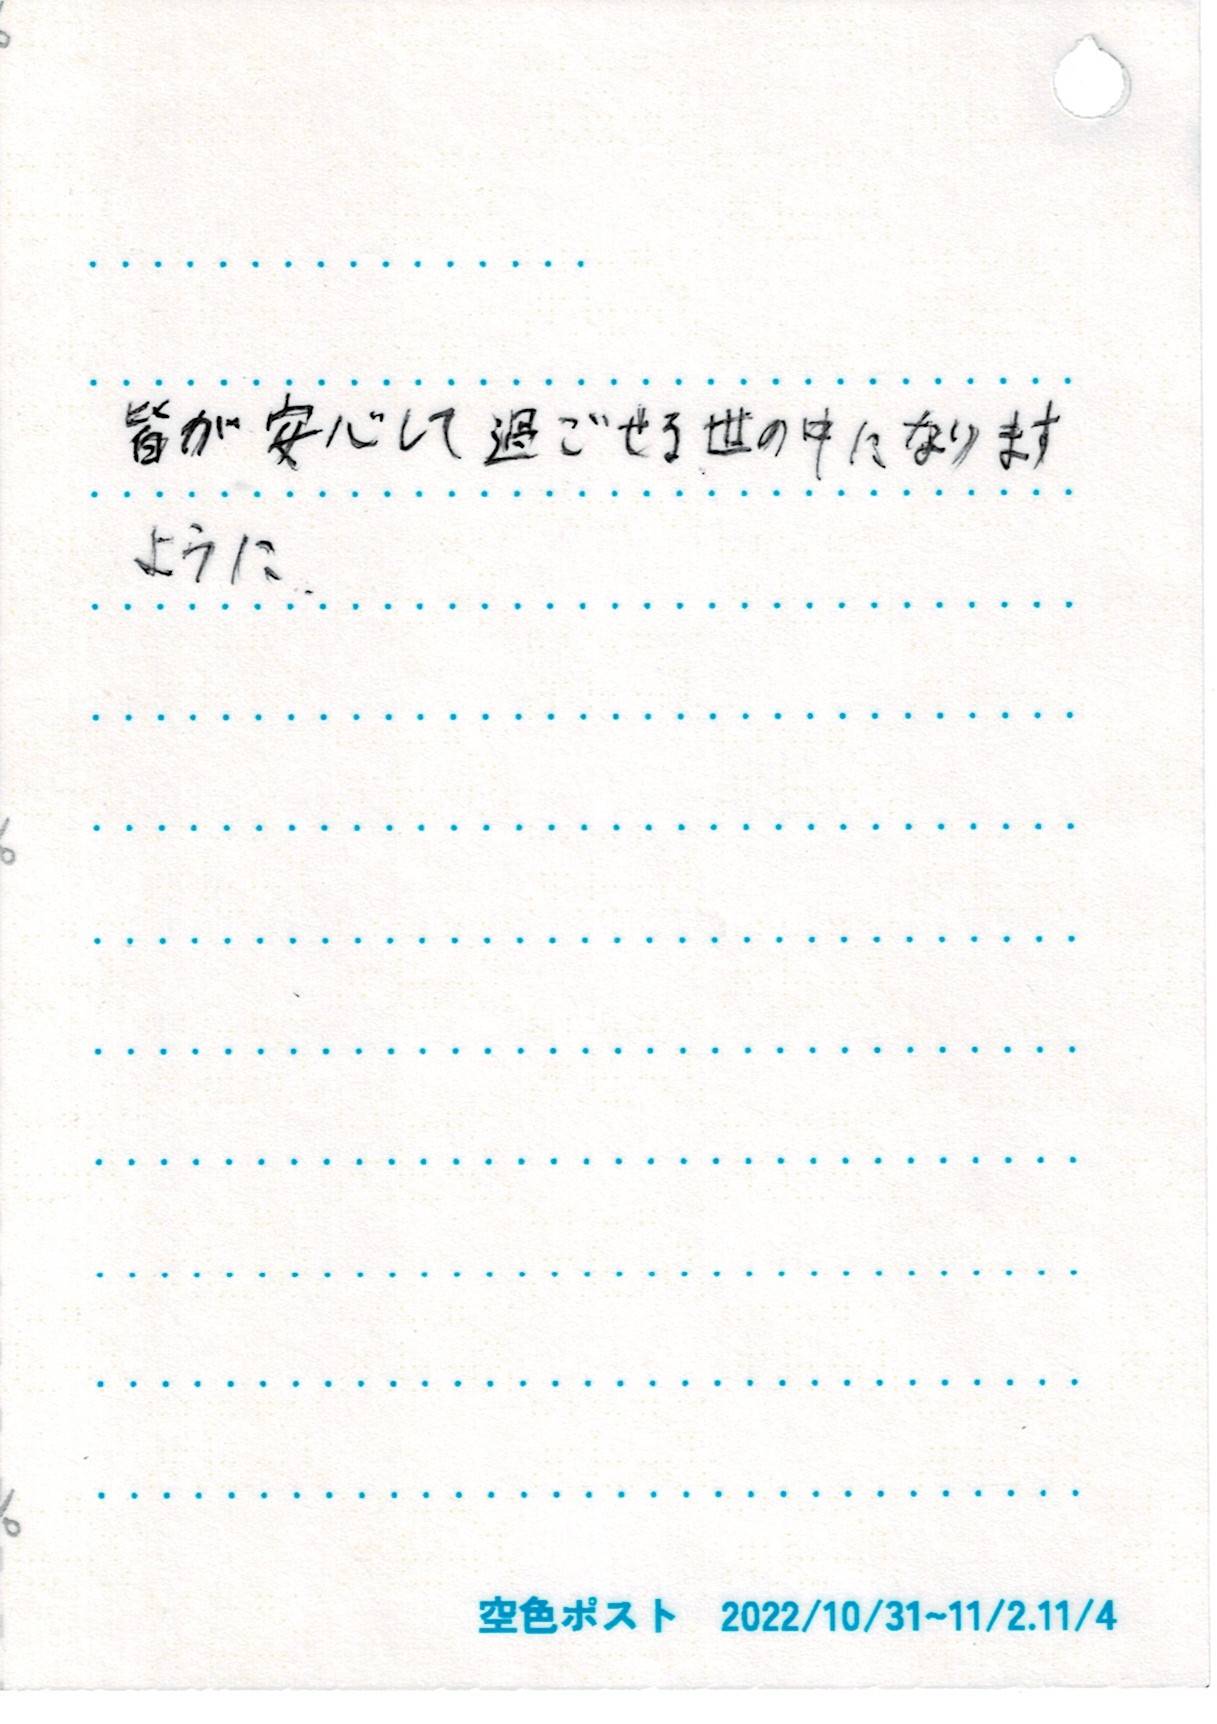 皆が安心して過ごせる世の中になります
ように
空色ポスト 2022/10/31~11/2.11/4